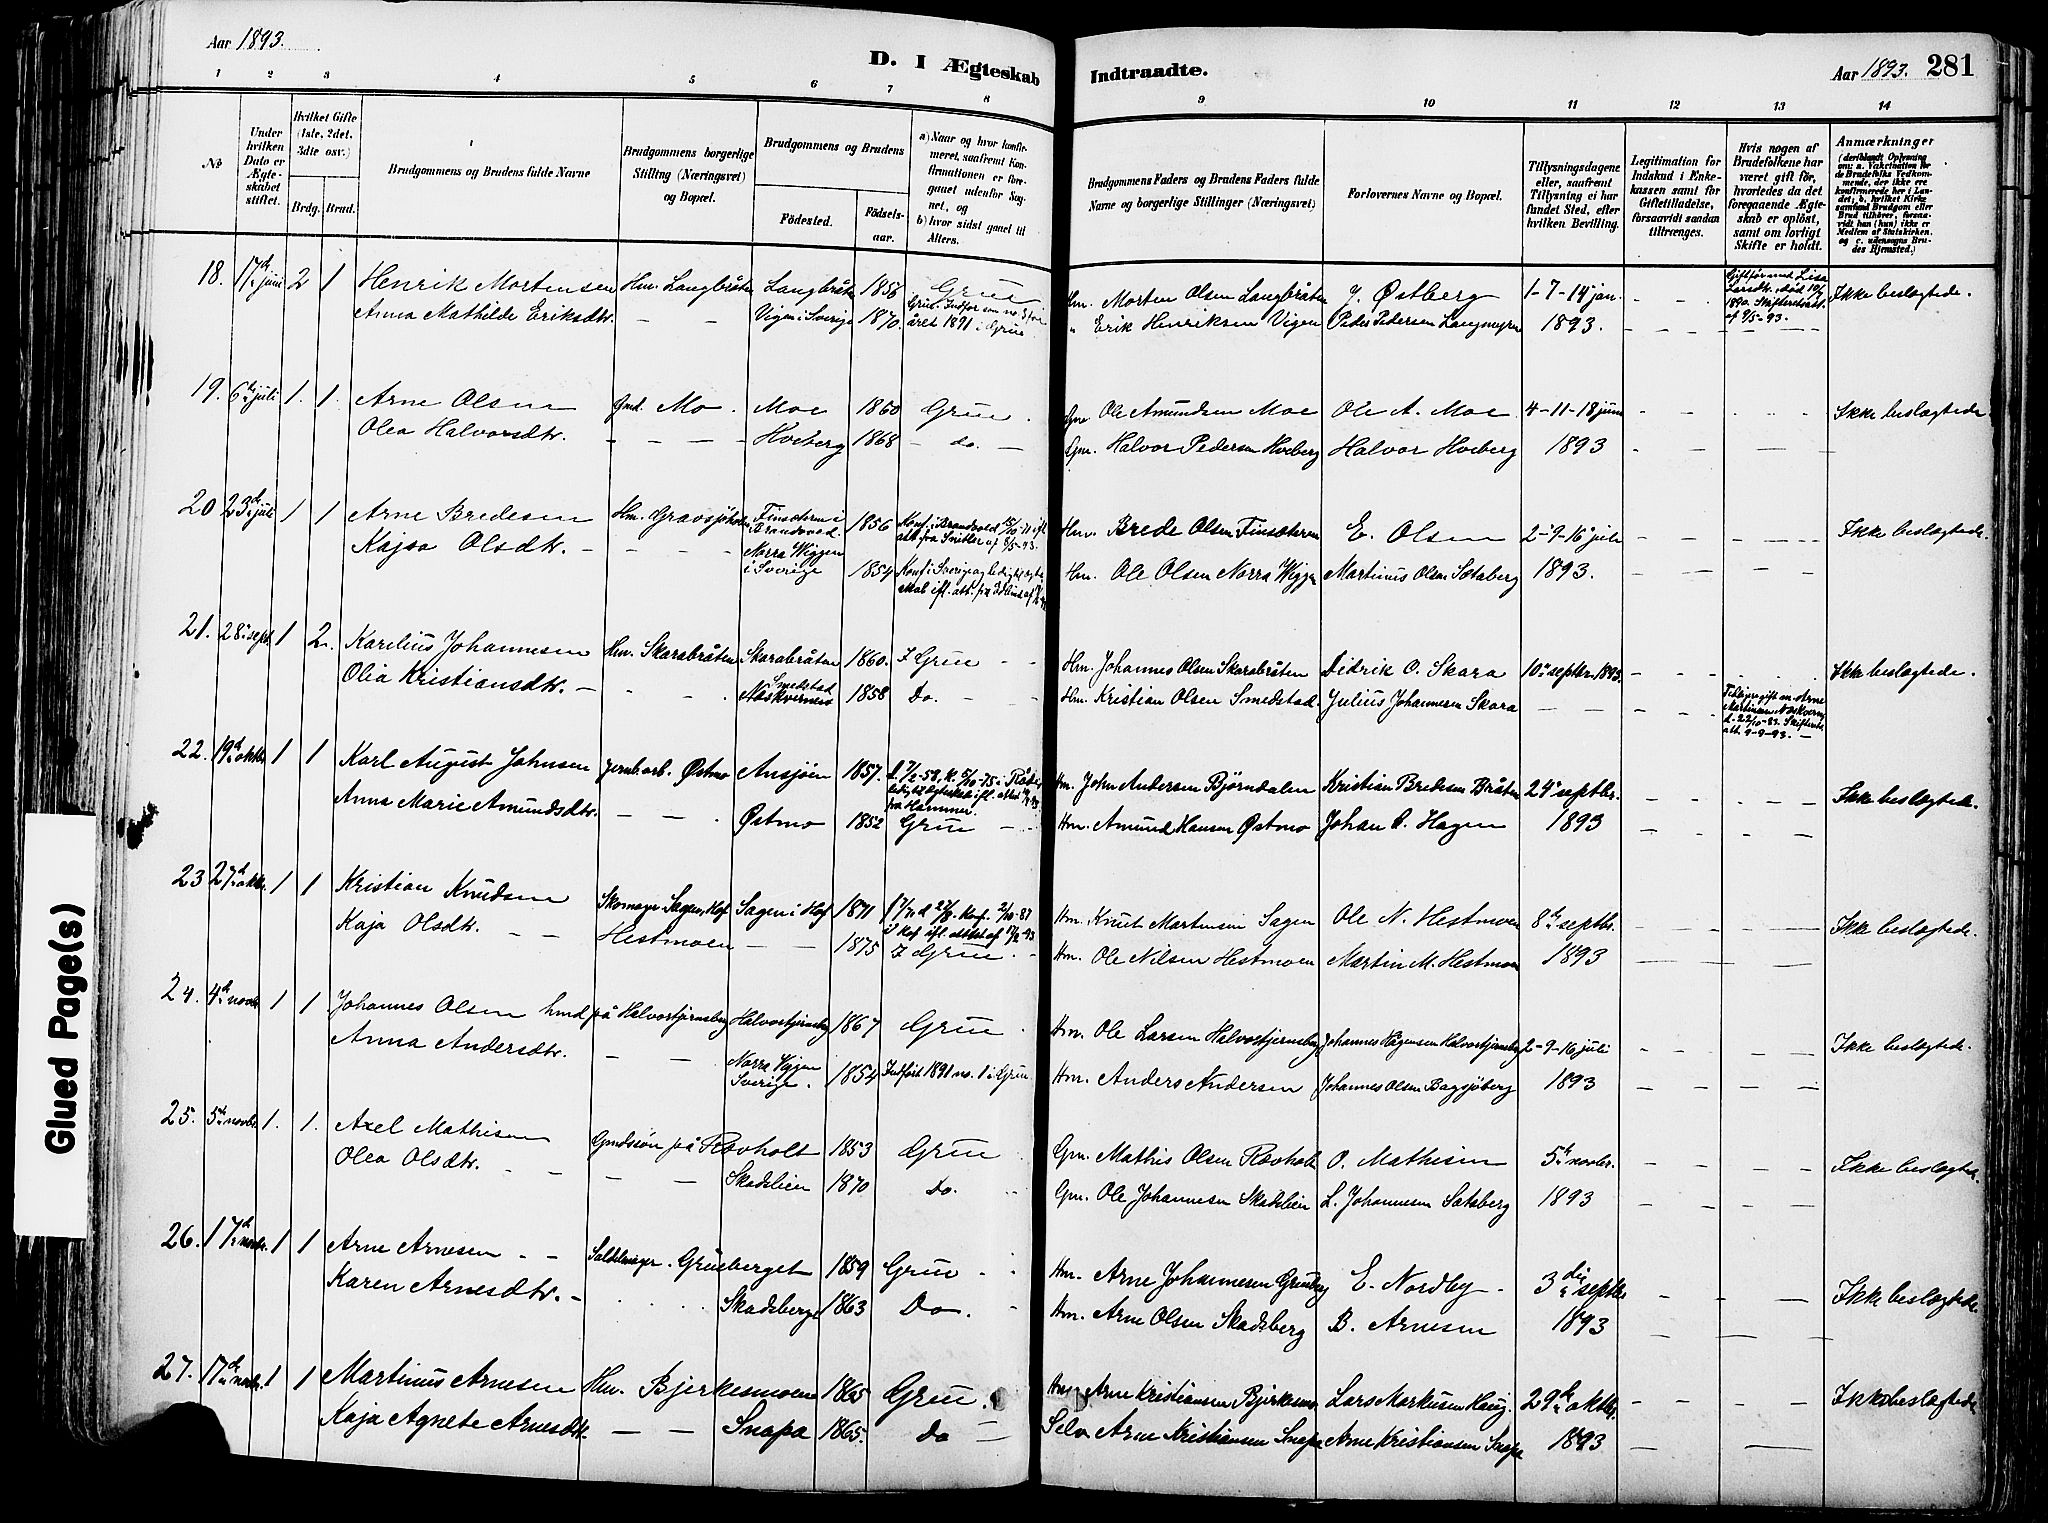 Aar 1893.
D. I Ægteskab
Indtraadte.
Aar 1893. 281
1 2 3 4 5 6 7 8 9 10 11 12 13 14
No
Under hvilken Dato er Ægteskabet stiftet.
Hvilket Gifte (1ste, 2det, 3die osv.)
Brdg. Brud.
Brudgommens og Brudens fulde Navne
Brudgommens borgerlige Stilling (Næringsvei) og Bopæl.
Brudgommens og Brudens
Fødested.
Fødselsaar.
a) Naar og hvor konfirmeret, saafremt Konfirmationen er foregaaet udenfor Sognet, og
b) hvor sidst gaaet til Alters.
Brudgommens Faders og Brudens Faders fulde Navne og borgerlige Stillinger (Næringsvei)
Forlovernes Navne og Bopæl.
Tillysningsdagene eller, saafremt Tillysning ei har fundet Sted, efter hvilken Bevilling.
Legitimation for Indskud i Enkekassen samt for Giftetilladelse, forsaavidt saadan tiltrænges.
Hvis nogen af Brudefolkene har været gift før, hvorledes da det foregaaende Ægteskab er opløst, samt om lovligt Skifte er holdt.
Anmærkninger
18. 17de juni 2 1 Henrik Mortensen Hm. Langbråten Langbråten 1856 Grue Hm. Morten Olsen Langbråten J. Østberg 1-7-14 jan. Ikke beslægtede.
Anna Mathilde Eriksdtr. Vigen i Sverige 1870 året 1891 i Grue " Erik Henriksen Vigen Peder Pedersen Langmyren 1893.
19. 6te juli 1. 1. Arne Olsen Gmd. Mo. Moe 1860 Grue Gm. Ole Amundsen Moe Ole A. Moe 4-11-18 juni Ikke beslægtede
Olea Halvorsdtr. Hveberg 1868 do. Gm. Halvor Pedersen Hveberg Halvor Hveberg 1893
20 23de juli 1 1 Arne Bredesen Hm. Gravsjøholm Finsæteren i Brandvold 1856 Konf. i Brandvold Hm. Brede Olsen Finsæteren E. Olsen 2-9-16 juli Ikke beslægtede.
Kajsa Olsdtr. Norra Wiggen i Sverige 1854 Konf. i Sverige og ledig til ægteskab ifl. att. Hm. Ole Olsen Norra Wiggen Martinus Olsen Sætaberg 1893.
21. 28 sept. 1 2. Karelius Johannesen Hm. Skarabråten Skarabråten 1860. I Grue Hm. Johannes Olsen Skarabråten Didrik O. Skara 10 septbr. 1893. Ikke beslægtede.
Olea Kristiansdtr. Smedstad Næskvernen 1858 Do. Hm. Kristian Olsen Smedstad. Julius Johannesen Skara
22. 19de oktbr. 1 1 Karl August Johnsen Jernb. arb. Østmo Ansjøen 1857. Hm. John Andersen Björndalen Kristian Bredesen Bråten 24 septbr. Ikke beslægtede.
Anna Marie Amundsdtr. Østmo 1852 Grue Hm. Amund Hansen Østmo Johan A. Hagen 1893
23 27de oktbr. 1 1 Kristian Knudsen Skomager Sagen, Hof Sagen i Hof 1871 Hm. Knut Martinsen Sagen Ole N. Hestmoen 8de septbr. Ikke beslægtede.
Kaja Olsdtr. Hestmoen 1875 I Grue. Hm. Ole Nilsen Hestmoen Martin M. Hestmoen 1893
24. 4de novbr. 1 1 Johannes Olsen hmd på Halvorstjernsberg Halvorstjernsberg 1867 Grue Hm. Ole Larsen Halvorstjernsberg Johannes Hågensen Halvorstjernsberg 2-9-16 juli Ikke beslægtede.
Anna Andersdtr. Norra Viggen Sverige. 1854 Indført 1891 no. 1 i Grue Hm. Anders Andersen Johannes Olsen Bagsjöberg 1893
25. 5te novbr. 1. 1. Axel Mathisen Gmdssøn på Rævholt 1853 Grue Gm. Mathis Olsen Rævholt O. Mathisen 5te novbr. Ikke beslægtede.
Olea Olsdtr. Skadslien 1870 Do. Gm. Ole Johannesen Skadslien L. Johannesen Sætsberg 1893
26. 17de novbr. 1 1 Arne Arnesen Saldelmager. Grüsberget 1859 Grue Hm. Arne Johannesen Grusberg E. Nordby 3die septbr. Ikke beslægtede
Karen Arnesdtr. Skadsberg 1863 Do. Hm. Arne Olsen Skadsberg B. Arnesen 1893
27. 17de novbr. 1 1 Martinus Arnesen Hm. Bjerkesmoen 1865 Grue. Hm. Arne Kristiansen Bjerkesmoen Lars Markusen Haug. 29de oktbr. Ikke beslægtede
Kaja Agnete Arnesdtr. Snapa 1865. Do Selv. Arne Kristiansen Snapa Arne Kristiansen Snapa 1893
Glued Page(s)